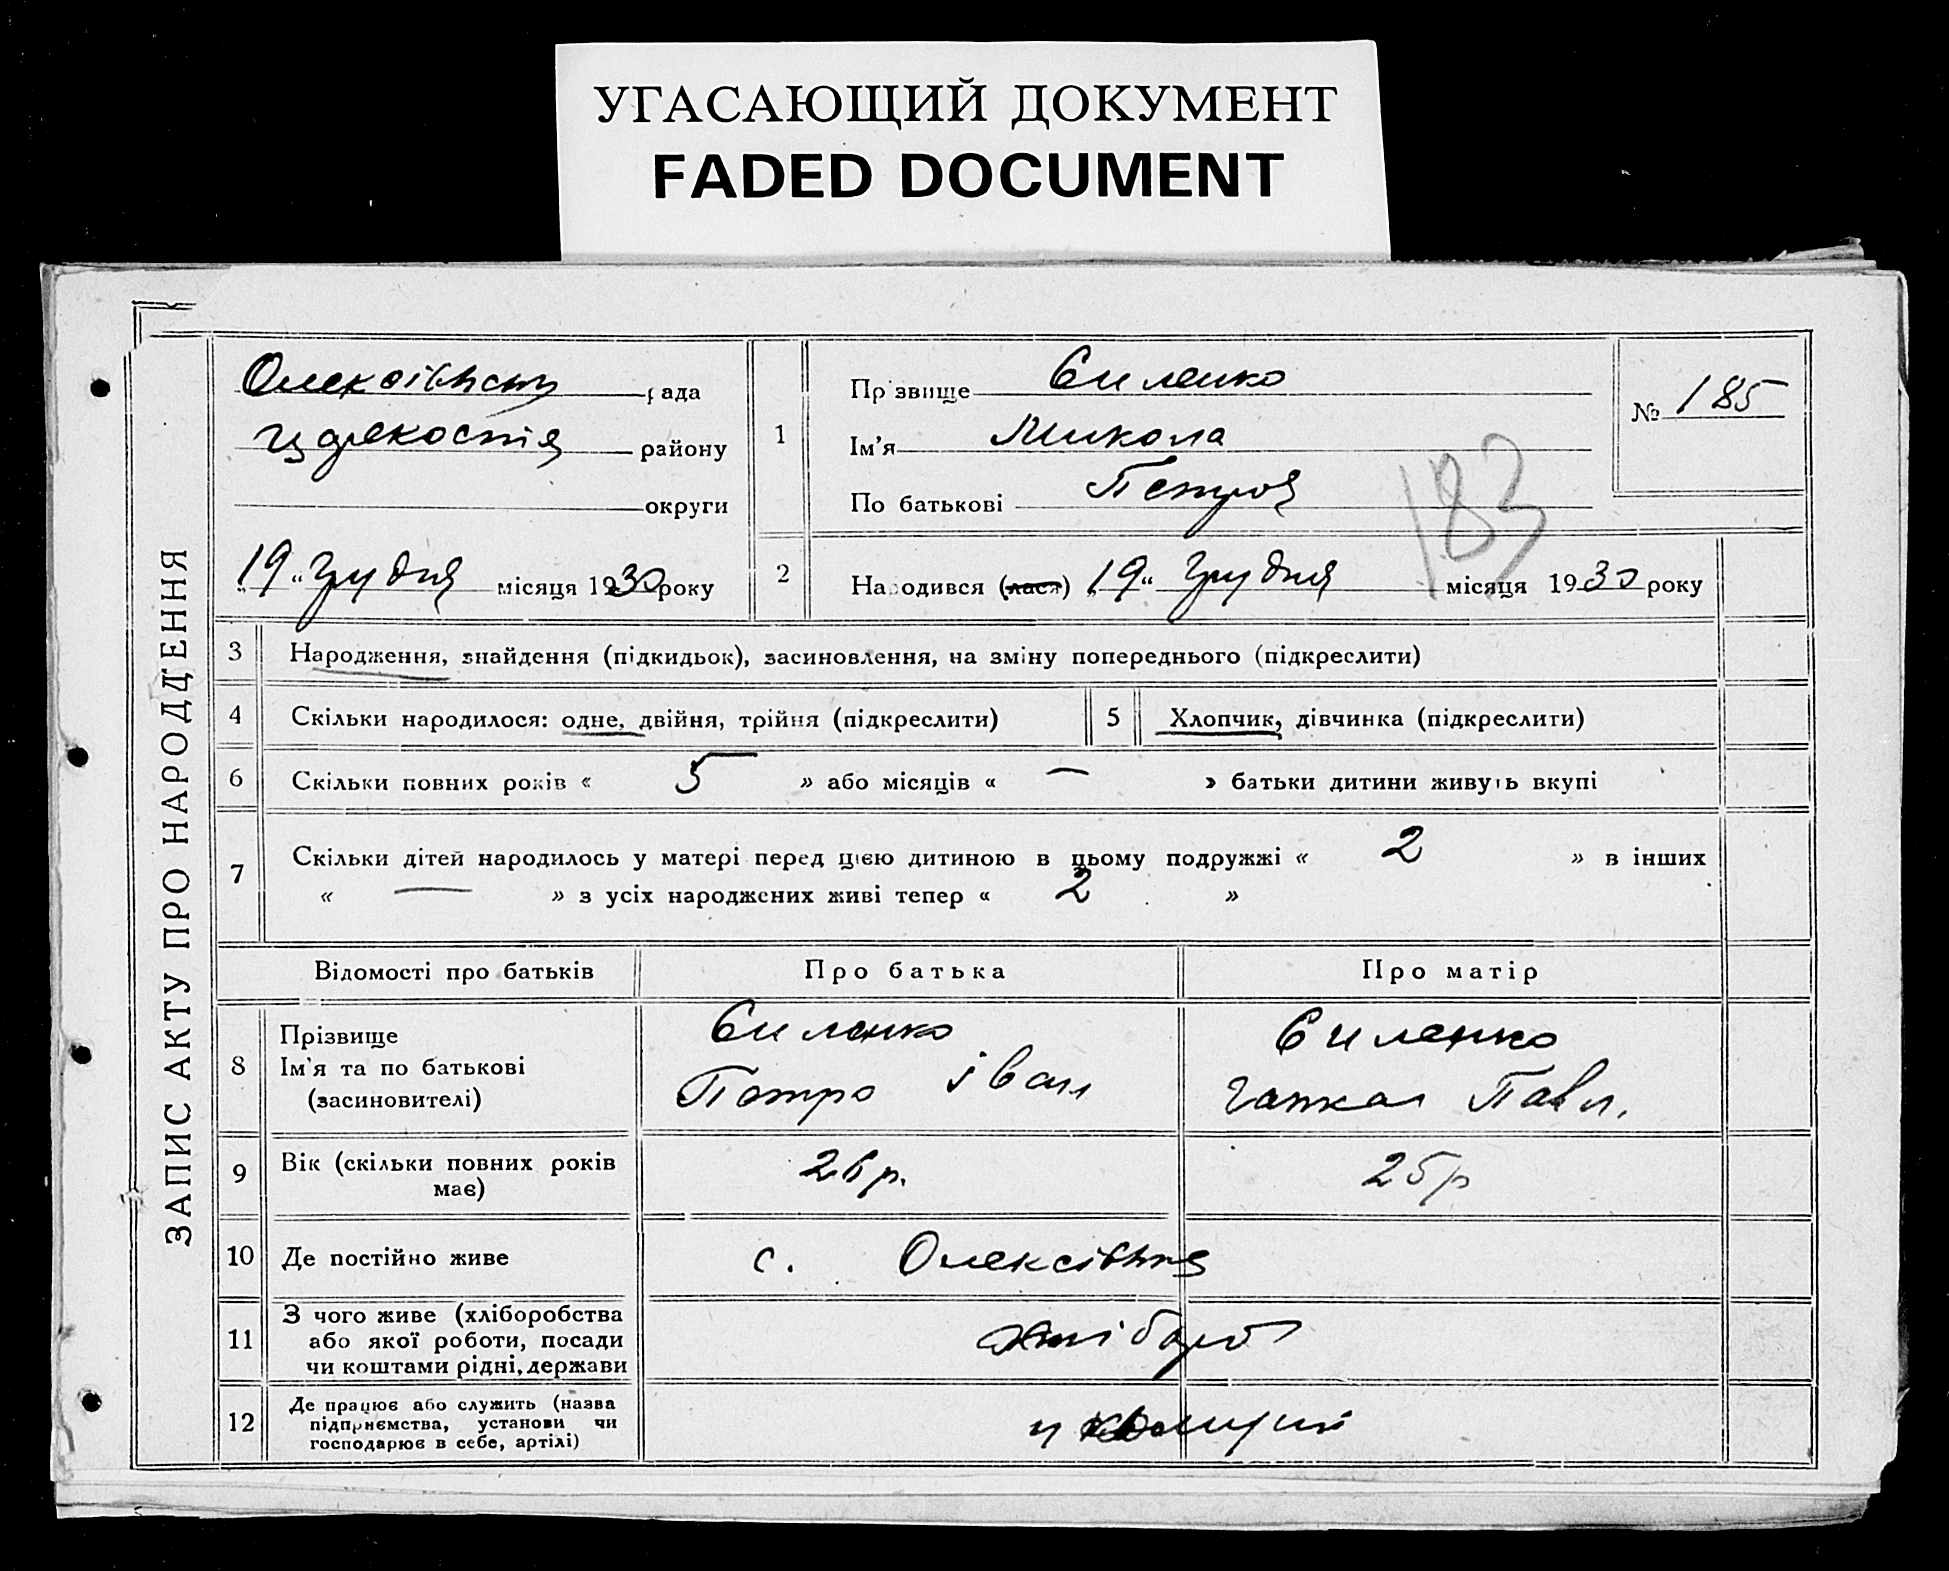 УГАСАЮЩИЙ ДОКУМЕНТ
FADED DOCUMENT
ЗАПИС АКТУ ПРО НАРОДЖЕННЯ
рада
району
округи
„19“ Грудня місяця 1930 року
1
Прізвище Єиленко
Ім'я Микола
По батькові Петров
№ 185
183
2
Народився (лася) „19“ Грудня місяця 1930 року
3 Народження, знайдення (підкидьок), засиновлення, на зміну попереднього (підкреслити)
4 Скільки народилося: одне, двійня, трійня (підкреслити)
5 Хлопчик, дівчинка (підкреслити)
6 Скільки повних років « 5 » або місяців « — » батьки дитини живуть вкупі
7 Скільки дітей народилось у матері перед цією дитиною в цьому подружжі « 2 » в інших
« — » з усіх народжених живі тепер « 2 »
Відомості про батьків Про батька Про матір
8
Прізвище
Ім'я та по батькові
(засиновителі)
Єиленко
Петро Іван
Єиленко
Павл.
9 Вік (скільки повних років
має)
26 р. 25 р
10 Де постійно живе с. Олексівка
11 З чого живе (хліборобства
або якої роботи, посади
чи коштами рідні, держави
хлібороб
12 Де працює або служить (назва
підприємства, установи чи
господарює в себе, артілі)